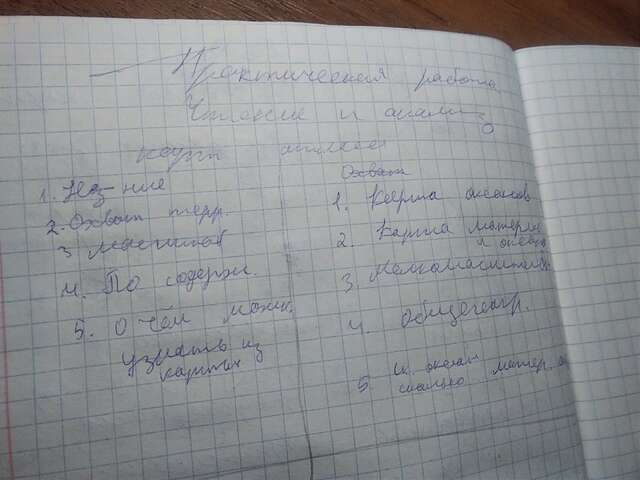 Практическая работа
Чтение и анализ
карт атласа
1. Наз-ние
2. Охват терр.
3 масштаб
4. По содерж.
5. О чём можн.
узнать из
карты
Охват
1. Карта океанов
2. Карта материк
и океано
3 Мелкомасштабн
4. Общегеогр.
5. ск. океан
сколько матер.